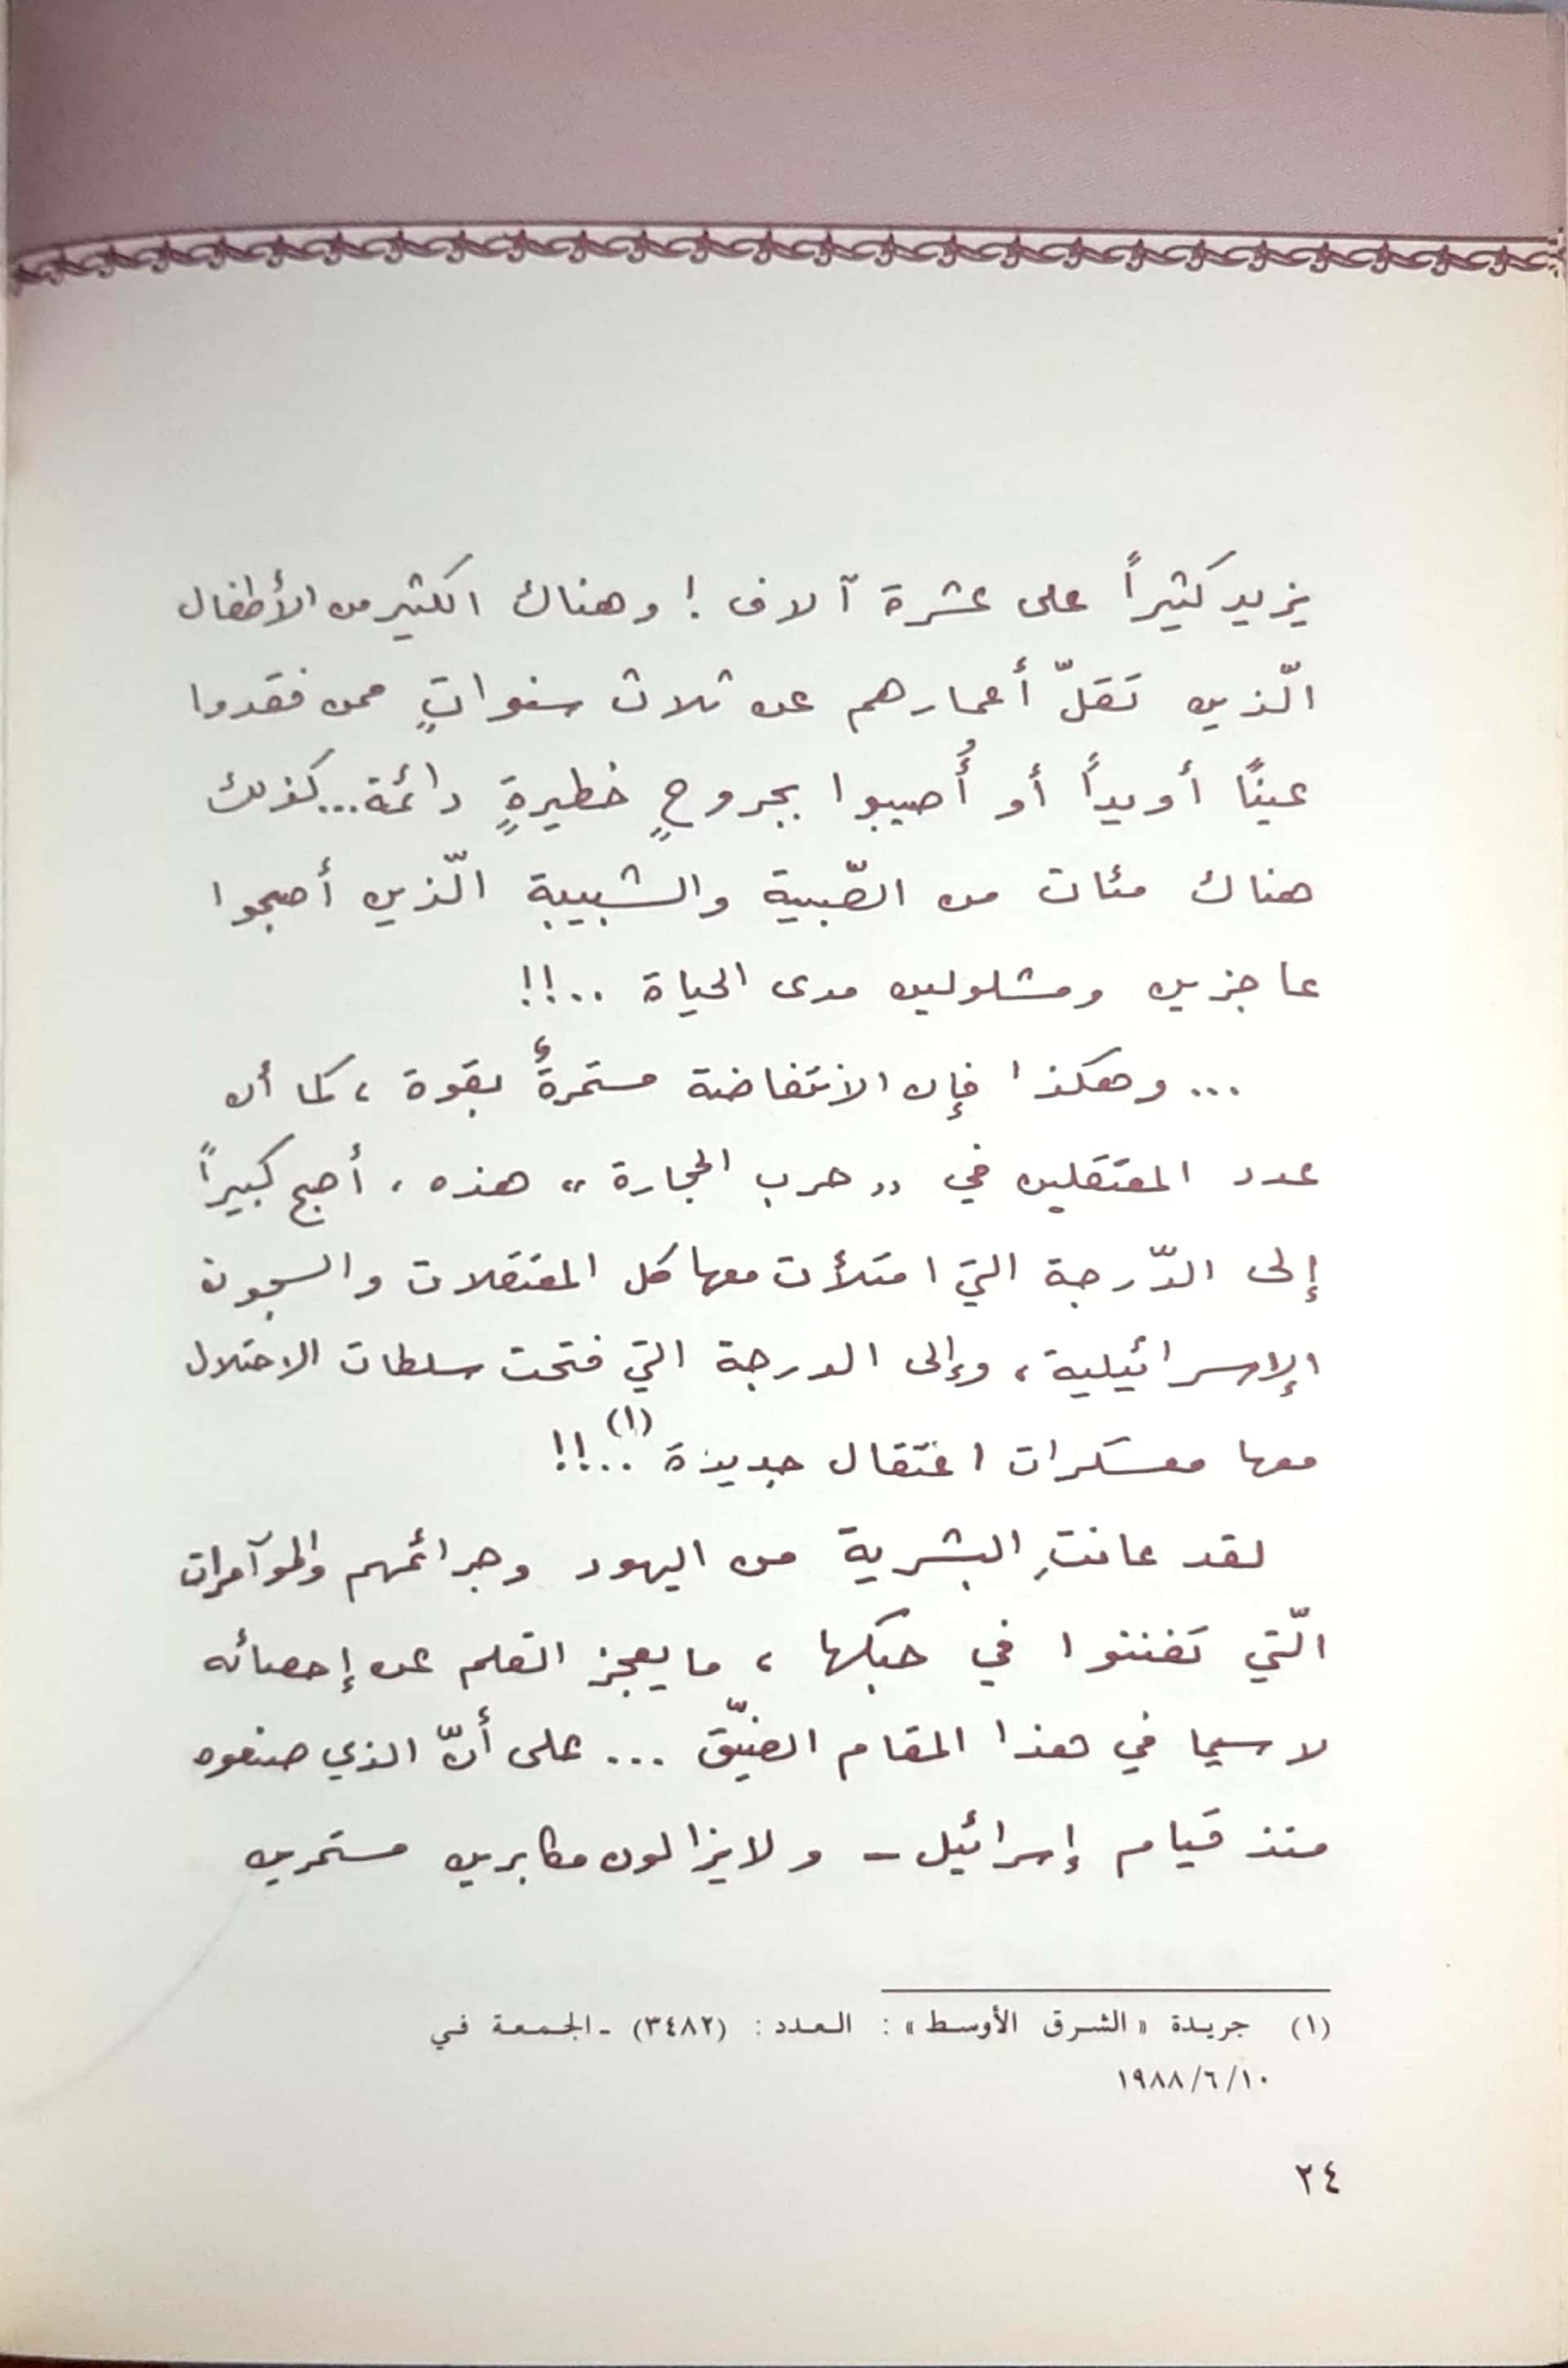 يزيد كثيراً على عشرة آلاف ! وهناك الكثير من الأطفال
الّذين تَقلّ أعمارهم عن ثلاث سنواتٍ ممن فقدوا
عينًا أو يداً أو أُصيبوا بجروحٍ خطيرةٍ دائمة... كذلك
هناك مئات من الصّبية والشبيبة الّذين أصبحوا
عاجزين ومشلولين مدى الحياة ..!!
... وهكذا فإن الانتفاضة مستمرةٌ بقوة ، كما أن
عدد المعتقلين في «حرب الحجارة» هذه ، أصبح كبيراً
إلى الدّرجة التي امتلأت معها كل المعتقلات والسجون
الإسرائيلية ، وإلى الدرجة التي فتحت سلطات الاحتلال
معها معسكرات اعتقال جديدة (١) ..!!
لقد عانتِ البشرية من اليهود وجرائمهم والمؤآمرات
الّتي تفننوا في حبكها ، ما يعجز القلم عن إحصائه
لا سيما في هذا المقام الضيّق ... على أنّ الذي صنعوه
منذ قيام إسرائيل - ولا يزالون مكابرين مستمرين
(١) جريدة «الشرق الأوسط» : العدد : (٣٤٨٢) - الجمعة في
١٩٨٨/٦/١٠
٢٤